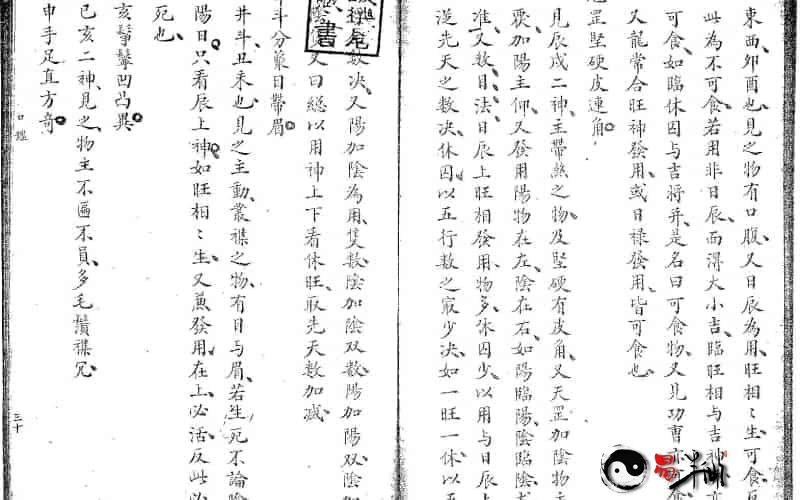 東西卯酉也見之物有口腹又日辰為用旺相〻生可食
此為不可食若用非日辰而得大小吉臨旺相與吉神
可食如臨休囚與吉將并是名曰可食物又見功曹亦
又龍常合旺神發用或日祿發用皆可食也
罡堅硬皮連角
見辰戌二神主帶煞之物及堅硬有皮角又天罡加陰物主
覆加陽主仰又發用陽物在左陰在右如陽臨陽陰臨陰
准又數目法日辰上旺相發用物多休囚少以用與日辰上
逆先天之數决休囚以五行數之最少决如一旺一休以
數决又陽加陰為用隻數陰加陰双數陽加陽双陰
又曰總以用神上下看休旺取先天數加减
斗分蒙日帶眉
井斗丑未也見之主動叢襍之物有目與眉若生死不論
陽日只看辰上神如旺相〻生又兼發用在上必活反此必
死也
亥髣髴凹凸異
巳亥二神見之物主不匾不員多毛鬚襍冗
申手足直方奇
三十
易